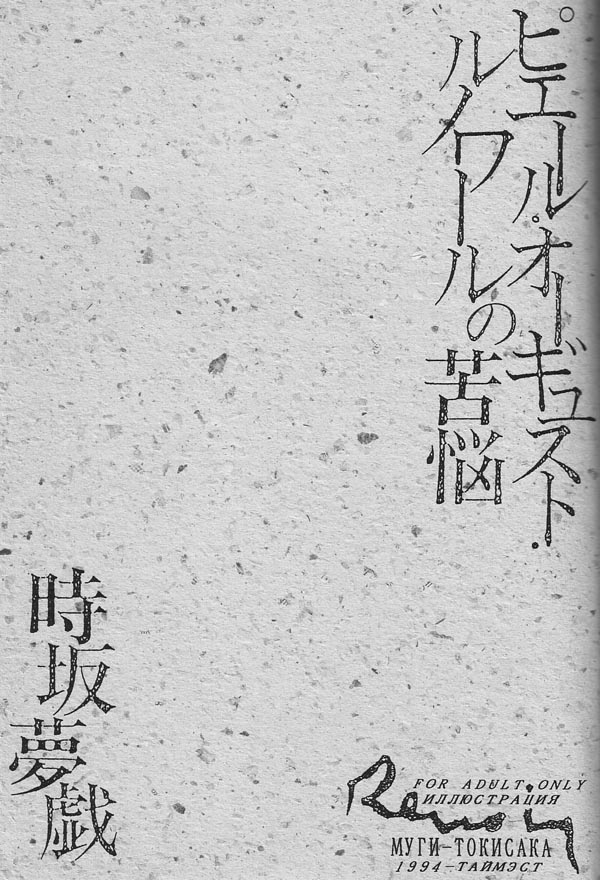 ピエール・オーギュスト・
ルノワールの苦悩
時坂夢戯
FOR ADULT ONLY
Renoir
ИЛЛЮСТРАЦИЯ
МУГИ-ТОКИСАКА
1994-ТАЙМЭСТ